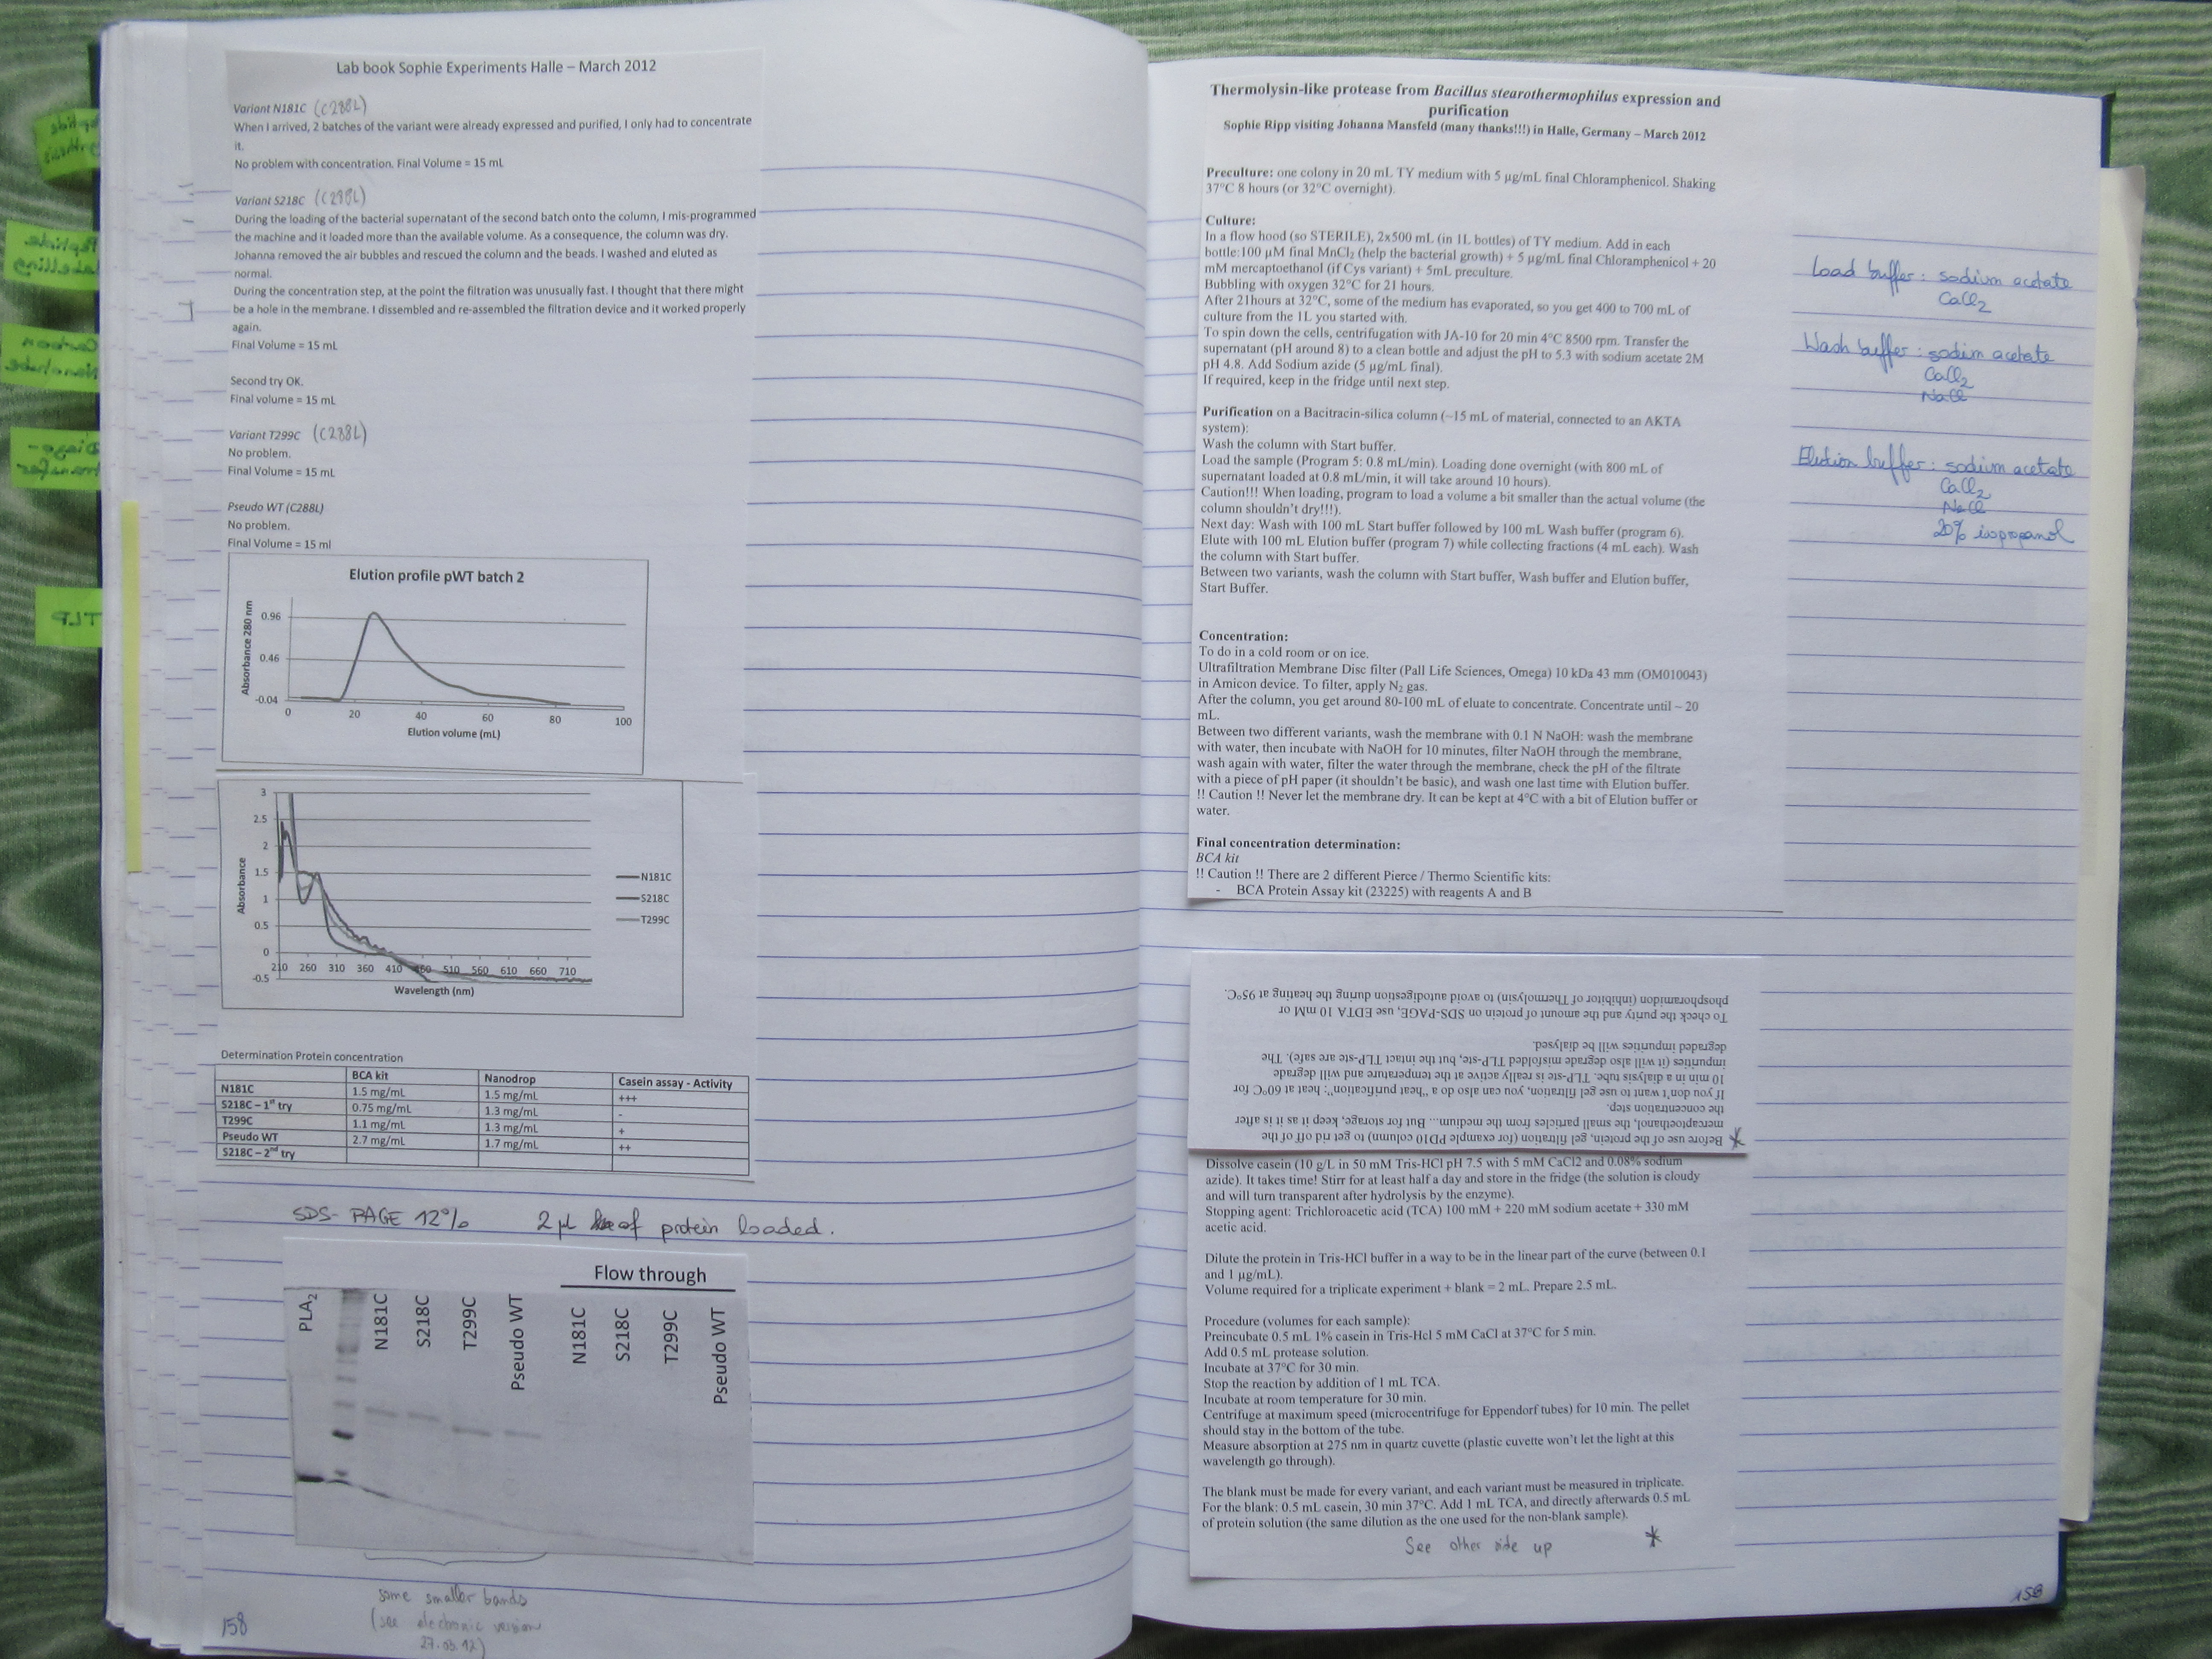 Lab book Sophie Experiments Halle – March 2012
Variant N181C (C288L)
When I arrived, 2 batches of the variant were already expressed and purified, I only had to concentrate
it.
No problem with concentration. Final Volume = 15 mL
Variant S218C (C288L)
During the loading of the bacterial supernatant of the second batch onto the column, I mis-programmed
the machine and it loaded more than the available volume. As a consequence, the column was dry.
Johanna removed the air bubbles and rescued the column and the beads. I washed and eluted as
normal.
During the concentration step, at the point the filtration was unusually fast. I thought that there might
be a hole in the membrane. I dissembled and re-assembled the filtration device and it worked properly
again.
Final Volume = 15 mL
Second try OK.
Final volume = 15 mL
Variant T299C (C288L)
No problem.
Final Volume = 15 mL
Pseudo WT (C288L)
No problem.
Final Volume = 15 ml
Elution profile pWT batch 2
Absorbance 280 nm
0.96
0.46
-0.04
0 20 40 60 80 100
Elution volume (mL)
Absorbance
3
2.5
2
1.5
1
0.5
0
-0.5
210 260 310 360 410 460 510 560 610 660 710
Wavelength (nm)
N181C
S218C
T299C
Determination Protein concentration
BCA kit Nanodrop Casein assay - Activity
N181C 1.5 mg/mL 1.5 mg/mL +++
S218C – 1st try 0.75 mg/mL 1.3 mg/mL -
T299C 1.1 mg/mL 1.3 mg/mL +
Pseudo WT 2.7 mg/mL 1.7 mg/mL ++
S218C – 2nd try
SDS-PAGE 12% 2 µL of protein loaded.
Flow through
PLA2 N181C S218C T299C Pseudo WT N181C S218C T299C Pseudo WT
some smaller bands
(see electronic version
27.03.12)
158
Thermolysin-like protease from Bacillus stearothermophilus expression and
purification
Sophie Ripp visiting Johanna Mansfeld (many thanks!!!) in Halle, Germany – March 2012
Preculture: one colony in 20 mL TY medium with 5 µg/mL final Chloramphenicol. Shaking
37°C 8 hours (or 32°C overnight).
Culture:
In a flow hood (so STERILE), 2x500 mL (in 1L bottles) of TY medium. Add in each
bottle:100 µM final MnCl2 (help the bacterial growth) + 5 µg/mL final Chloramphenicol + 20
mM mercaptoethanol (if Cys variant) + 5mL preculture.
Bubbling with oxygen 32°C for 21 hours.
After 21hours at 32°C, some of the medium has evaporated, so you get 400 to 700 mL of
culture from the 1L you started with.
To spin down the cells, centrifugation with JA-10 for 20 min 4°C 8500 rpm. Transfer the
supernatant (pH around 8) to a clean bottle and adjust the pH to 5.3 with sodium acetate 2M
pH 4.8. Add Sodium azide (5 µg/mL final).
If required, keep in the fridge until next step.
Purification on a Bacitracin-silica column (~15 mL of material, connected to an AKTA
system):
Wash the column with Start buffer.
Load the sample (Program 5: 0.8 mL/min). Loading done overnight (with 800 mL of
supernatant loaded at 0.8 mL/min, it will take around 10 hours).
Caution!!! When loading, program to load a volume a bit smaller than the actual volume (the
column shouldn't dry!!!).
Next day: Wash with 100 mL Start buffer followed by 100 mL Wash buffer (program 6).
Elute with 100 mL Elution buffer (program 7) while collecting fractions (4 mL each). Wash
the column with Start buffer.
Between two variants, wash the column with Start buffer, Wash buffer and Elution buffer,
Start Buffer.
Concentration:
To do in a cold room or on ice.
Ultrafiltration Membrane Disc filter (Pall Life Sciences, Omega) 10 kDa 43 mm (OM010043)
in Amicon device. To filter, apply N2 gas.
After the column, you get around 80-100 mL of eluate to concentrate. Concentrate until ~ 20
mL.
Between two different variants, wash the membrane with 0.1 N NaOH: wash the membrane
with water, then incubate with NaOH for 10 minutes, filter NaOH through the membrane,
wash again with water, filter the water through the membrane, check the pH of the filtrate
with a piece of pH paper (it shouldn't be basic), and wash one last time with Elution buffer.
!! Caution !! Never let the membrane dry. It can be kept at 4°C with a bit of Elution buffer or
water.
Final concentration determination:
BCA kit
!! Caution !! There are 2 different Pierce / Thermo Scientific kits:
- BCA Protein Assay kit (23225) with reagents A and B
Load buffer: sodium acetate
CaCl2
Wash buffer: sodium acetate
CaCl2
NaCl
Elution buffer: sodium acetate
CaCl2
NaCl
20% isopropanol
* Before use of the protein, gel filtration (for example PD10 column) to get rid off of the
mercaptoethanol, the small particles from the medium... But for storage, keep it as it is after
the concentration step.
If you don't want to use gel filtration, you can also do a "heat purification": heat at 60°C for
10 min in a dialysis tube. TLP-ste is really active at the temperature and will degrade
impurities (it will also degrade misfolded TLP-ste, but the intact TLP-ste are safe). The
degraded impurities will be dialysed.
To check the purity and the amount of protein on SDS-PAGE, use EDTA 10 mM or
phosphoramidon (inhibitor of Thermolysin) to avoid autodigestion during the heating at 95°C.
Dissolve casein (10 g/L in 50 mM Tris-HCl pH 7.5 with 5 mM CaCl2 and 0.08% sodium
azide). It takes time! Stirr for at least half a day and store in the fridge (the solution is cloudy
and will turn transparent after hydrolysis by the enzyme).
Stopping agent: Trichloroacetic acid (TCA) 100 mM + 220 mM sodium acetate + 330 mM
acetic acid.
Dilute the protein in Tris-HCl buffer in a way to be in the linear part of the curve (between 0.1
and 1 µg/mL).
Volume required for a triplicate experiment + blank = 2 mL. Prepare 2.5 mL.
Procedure (volumes for each sample):
Preincubate 0.5 mL 1% casein in Tris-Hcl 5 mM CaCl at 37°C for 5 min.
Add 0.5 mL protease solution.
Incubate at 37°C for 30 min.
Stop the reaction by addition of 1 mL TCA.
Incubate at room temperature for 30 min.
Centrifuge at maximum speed (microcentrifuge for Eppendorf tubes) for 10 min. The pellet
should stay in the bottom of the tube.
Measure absorption at 275 nm in quartz cuvette (plastic cuvette won't let the light at this
wavelength go through).
The blank must be made for every variant, and each variant must be measured in triplicate.
For the blank: 0.5 mL casein, 30 min 37°C. Add 1 mL TCA, and directly afterwards 0.5 mL
of protein solution (the same dilution as the one used for the non-blank sample).
See other side up *
158
Peptide
Labelling
Carbon
Nanotube
TLP